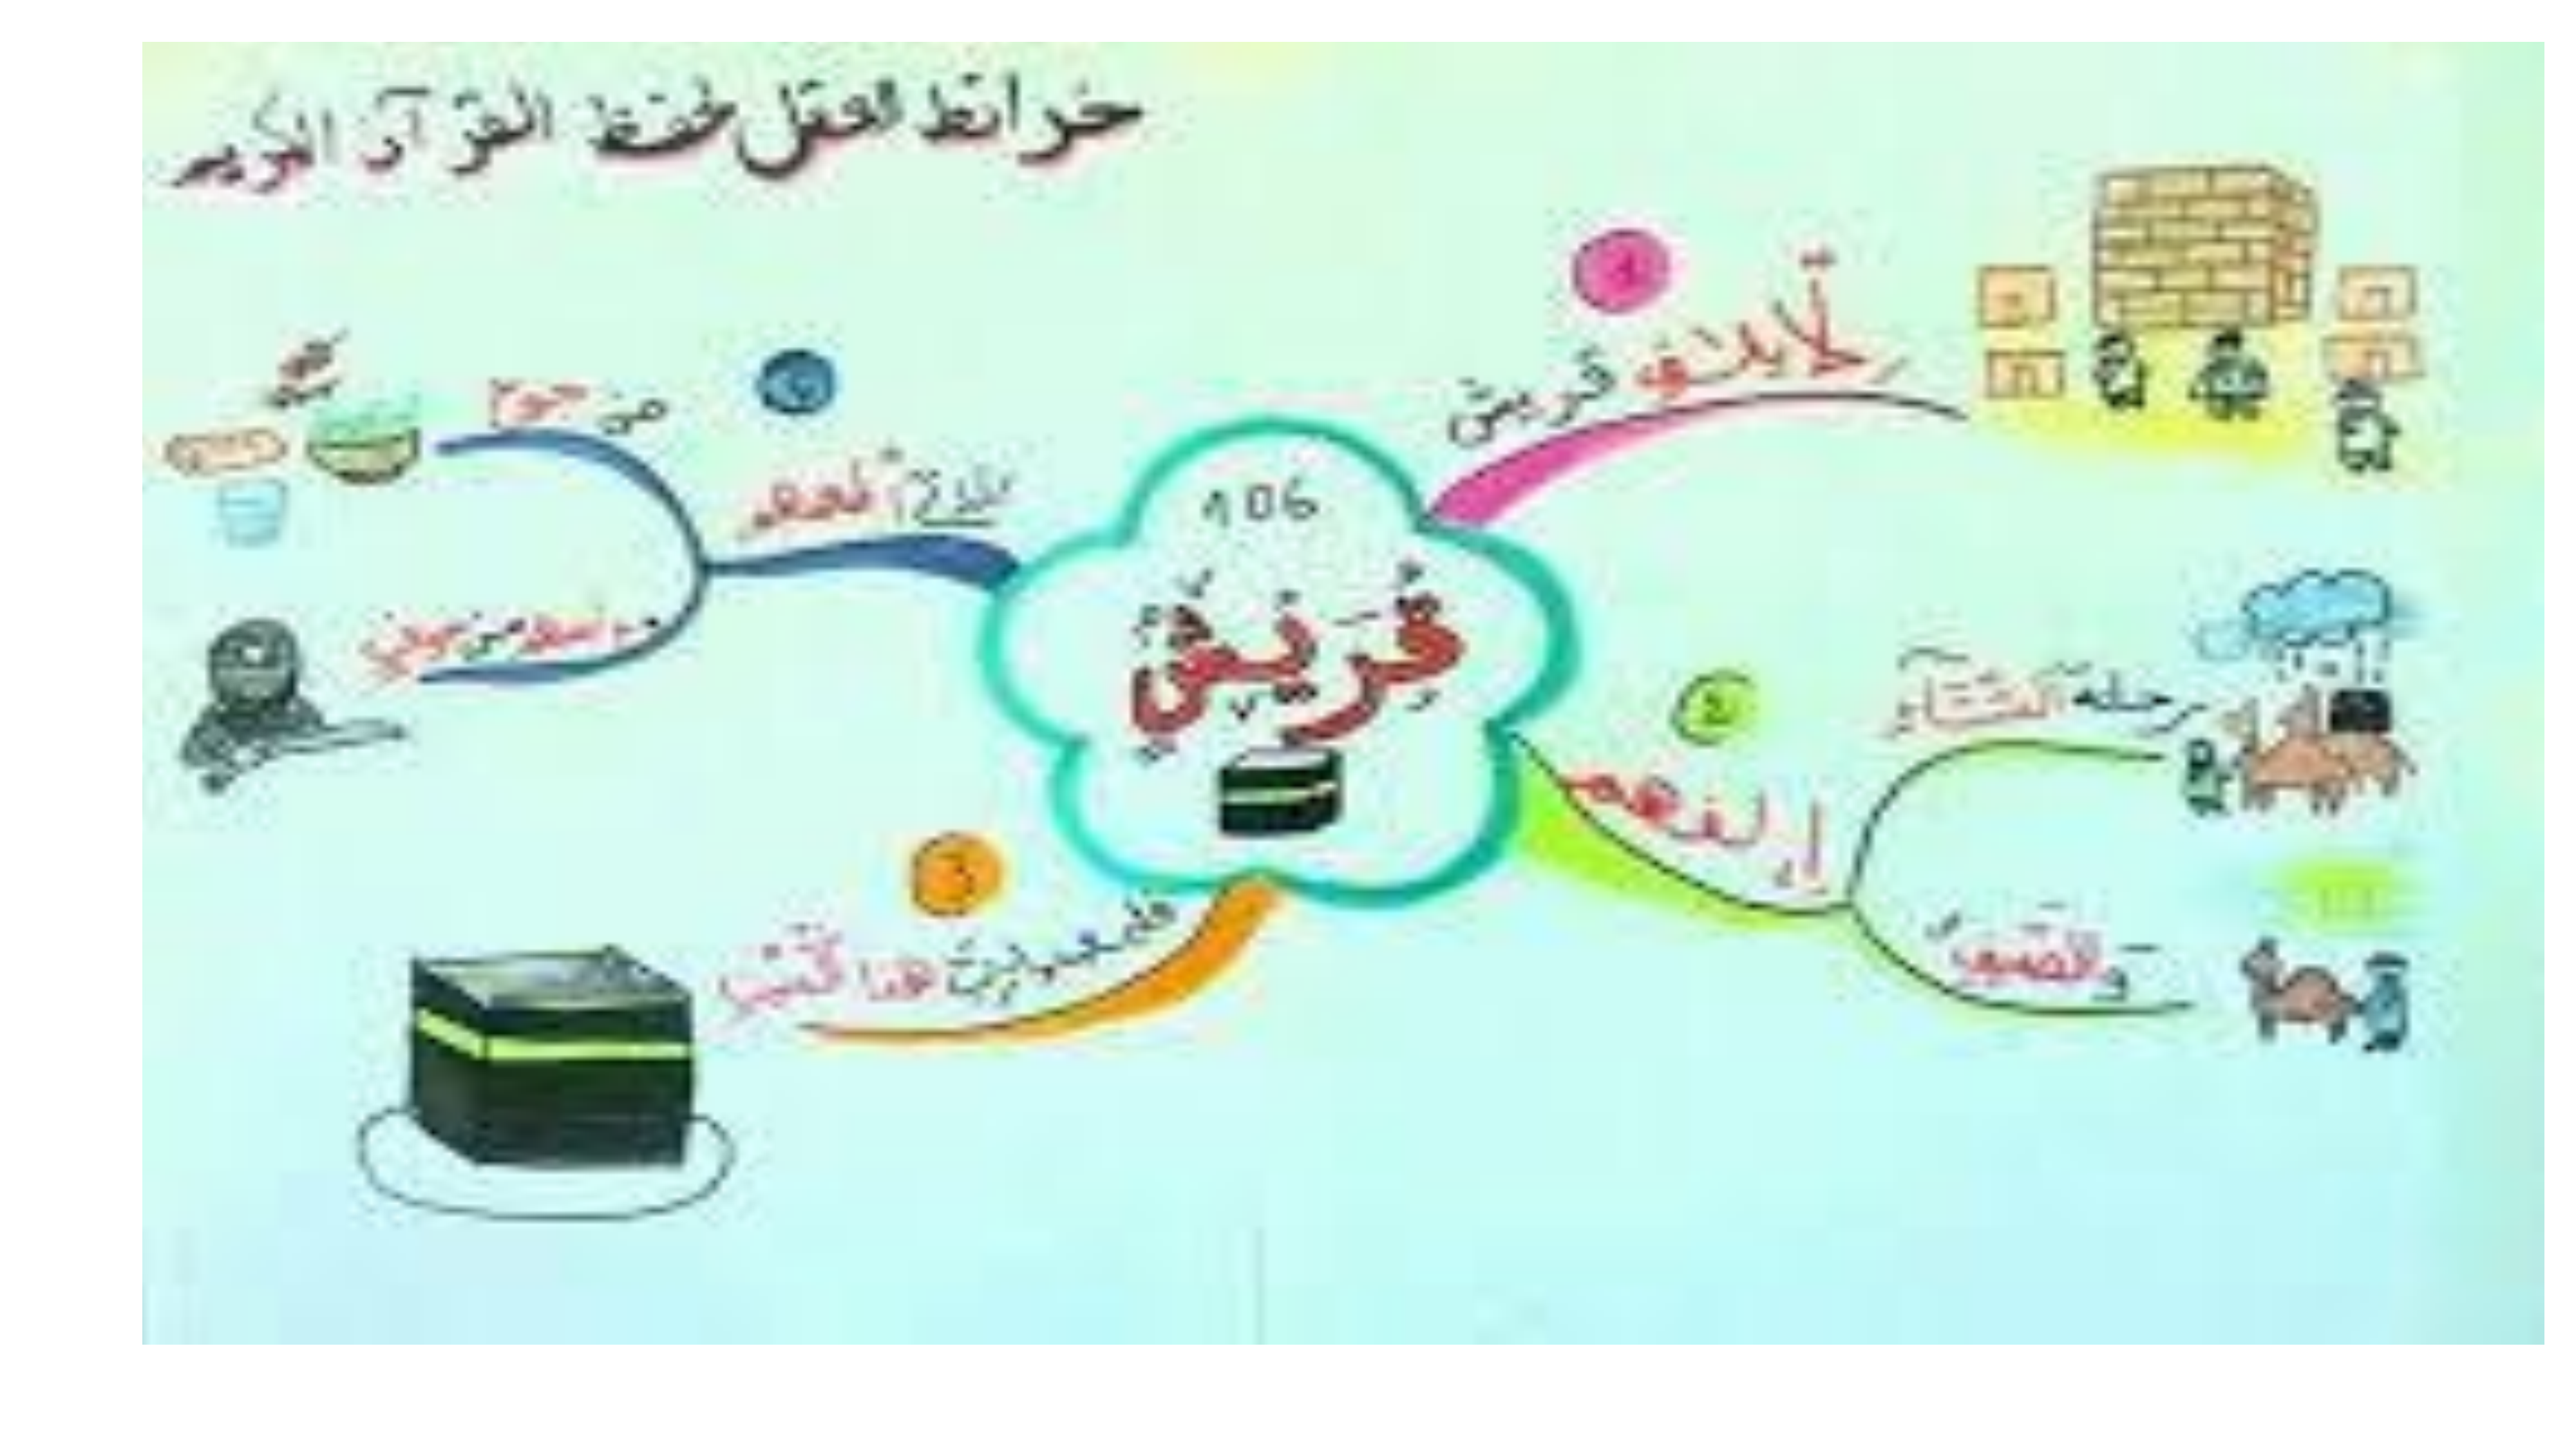 خرائط العقل لحفظ القرآن الكريم
106
قُرَيْشٍ
1
لِإِيلَٰفِ قريش
2
إۦلٰفهم
رحلة الشتاء
والصيف
3
فليعبدوا ربّ هذا البيت
الذي أطعمهم
من جوع
وءامنهم من خوف